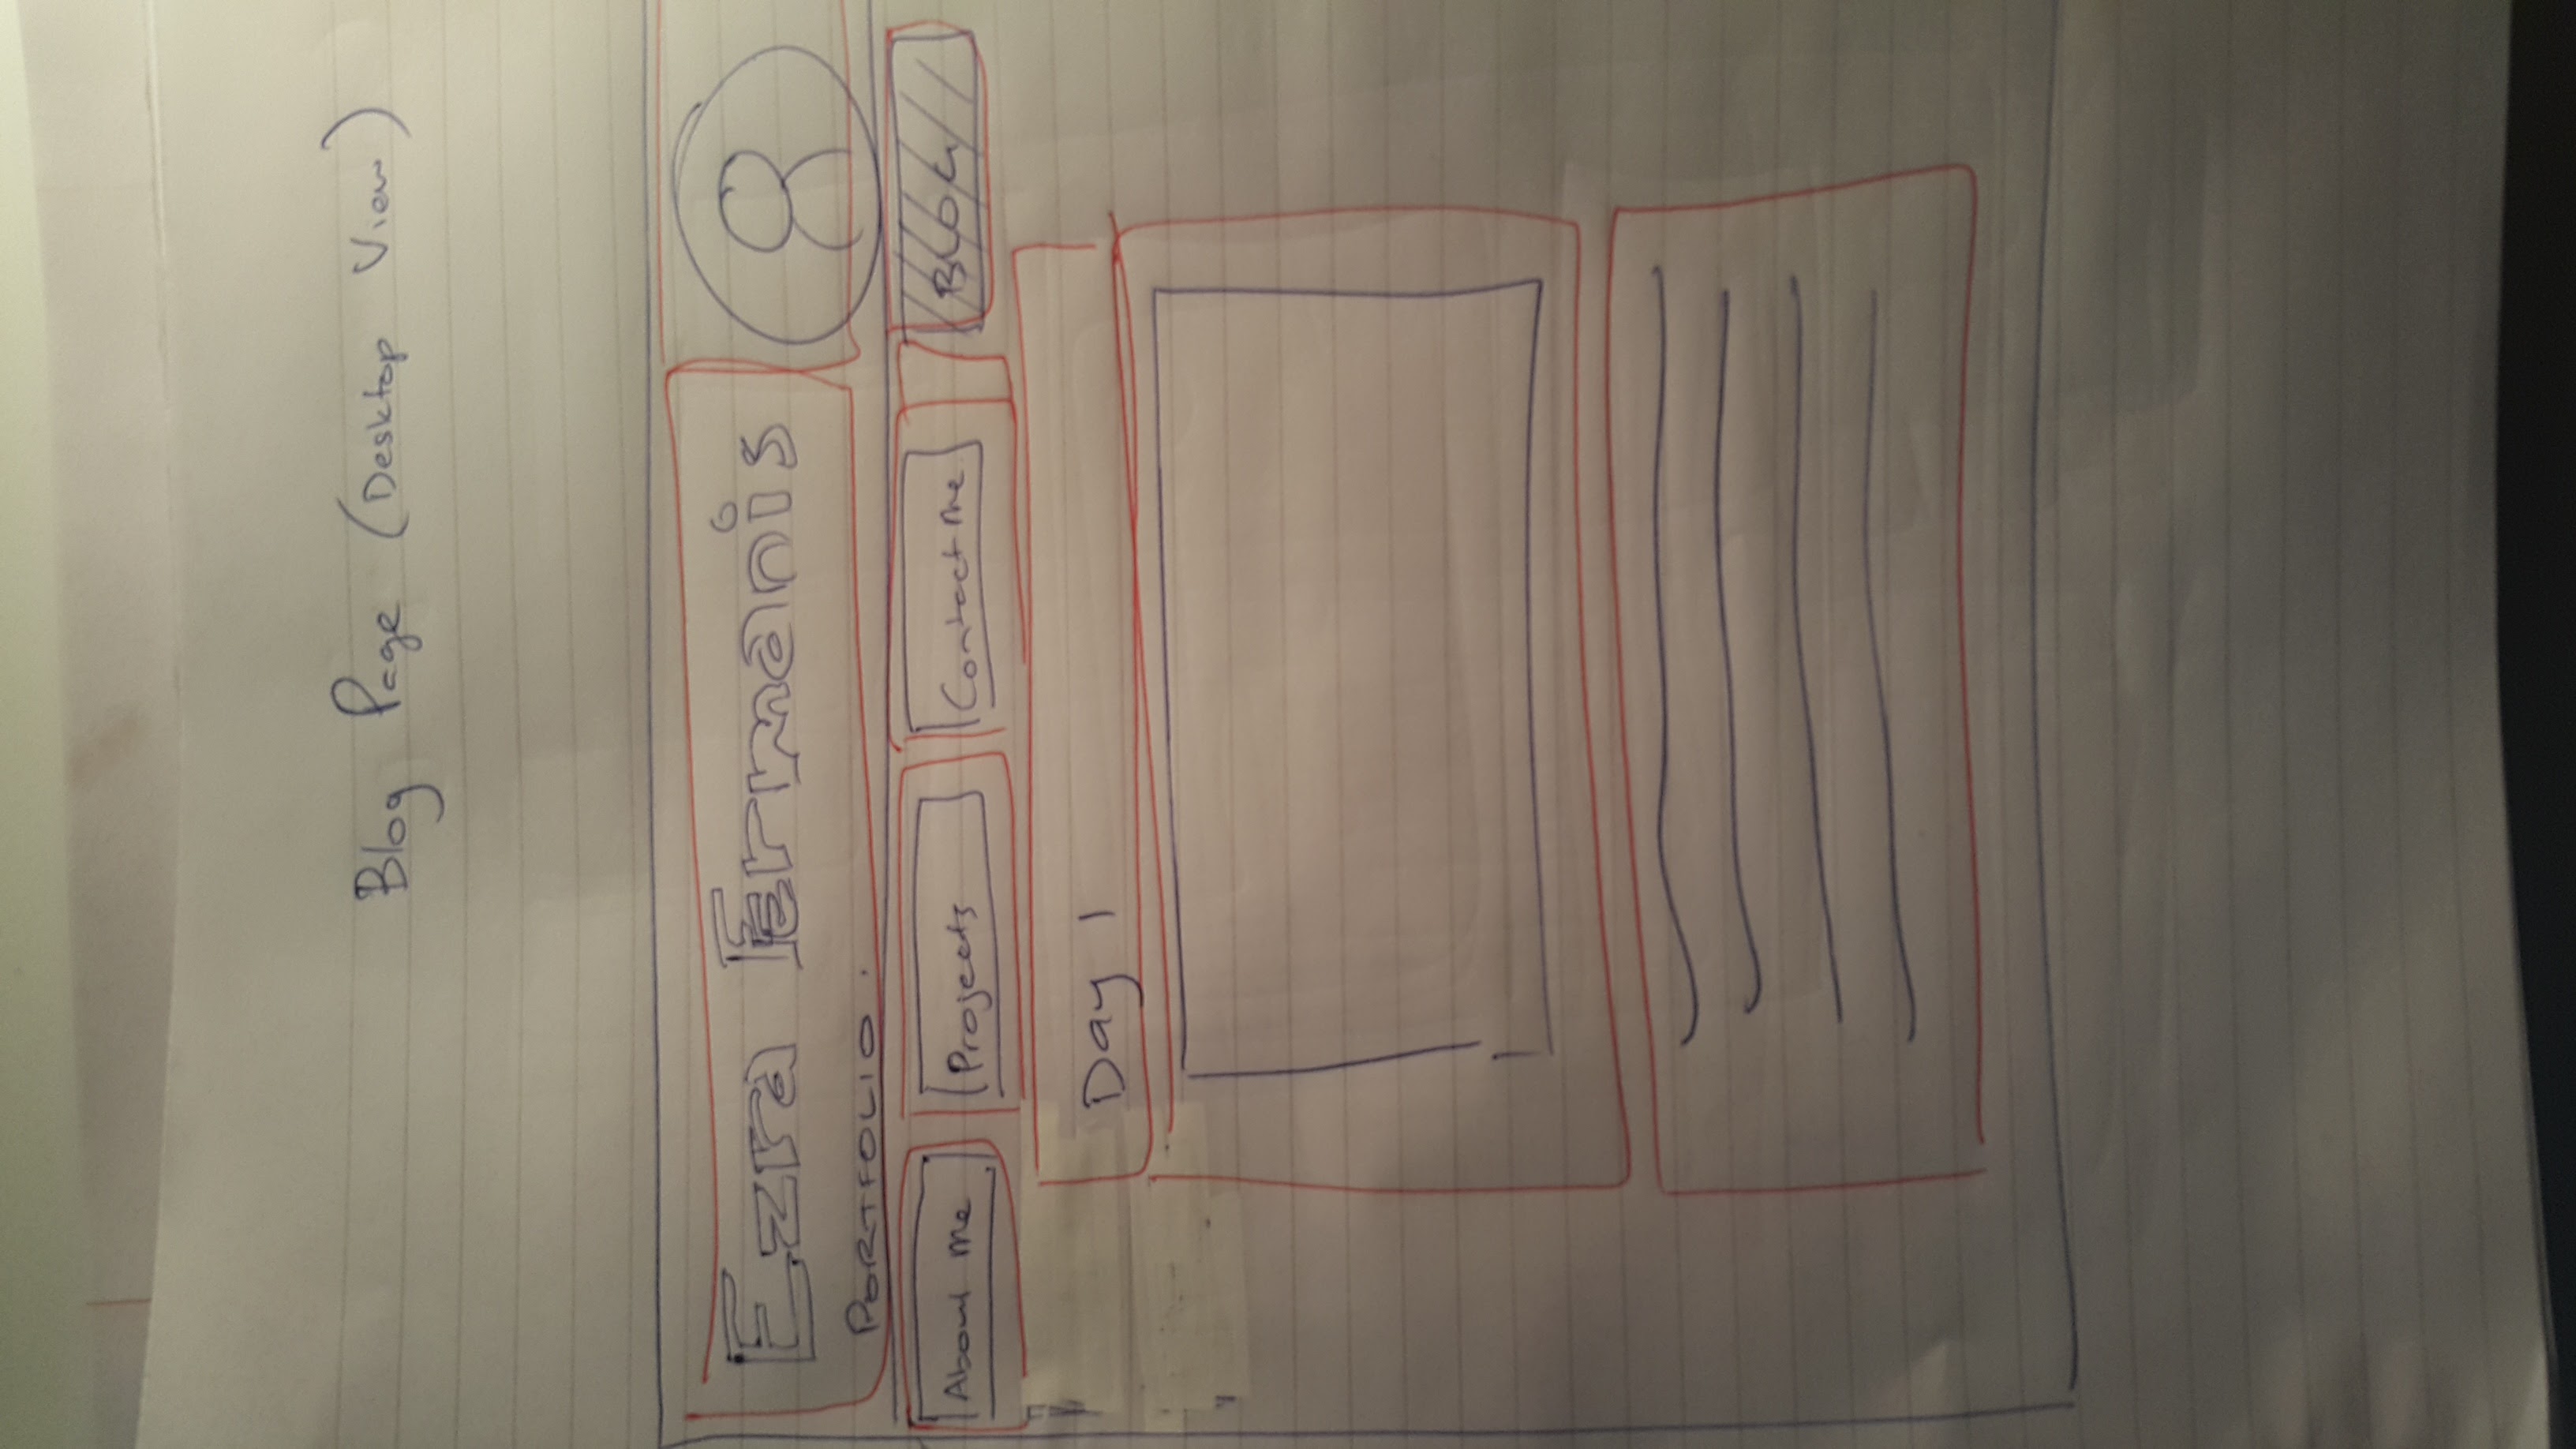 Blog Page (Desktop View)
Ezra Ermanis
PORTFOLIO.
About Me
Projects
Contact Me
BLOG
Day 1